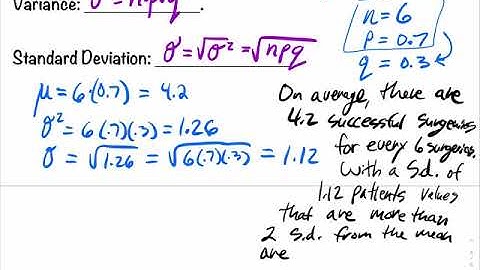 Variance: σ² = n·p·q.
n = 6
p = 0.7
q = 0.3
Standard Deviation: σ = √σ² = √npq
μ = 6·(0.7) = 4.2
σ² = 6(.7)(.3) = 1.26
σ = √1.26 = √6(.7)(.3) = 1.12
On average, there are
4.2 successful surgeries
for every 6 surgeries.
With a s.d. of
1.12 patients values
that are more than
2 s.d. from the mean
are